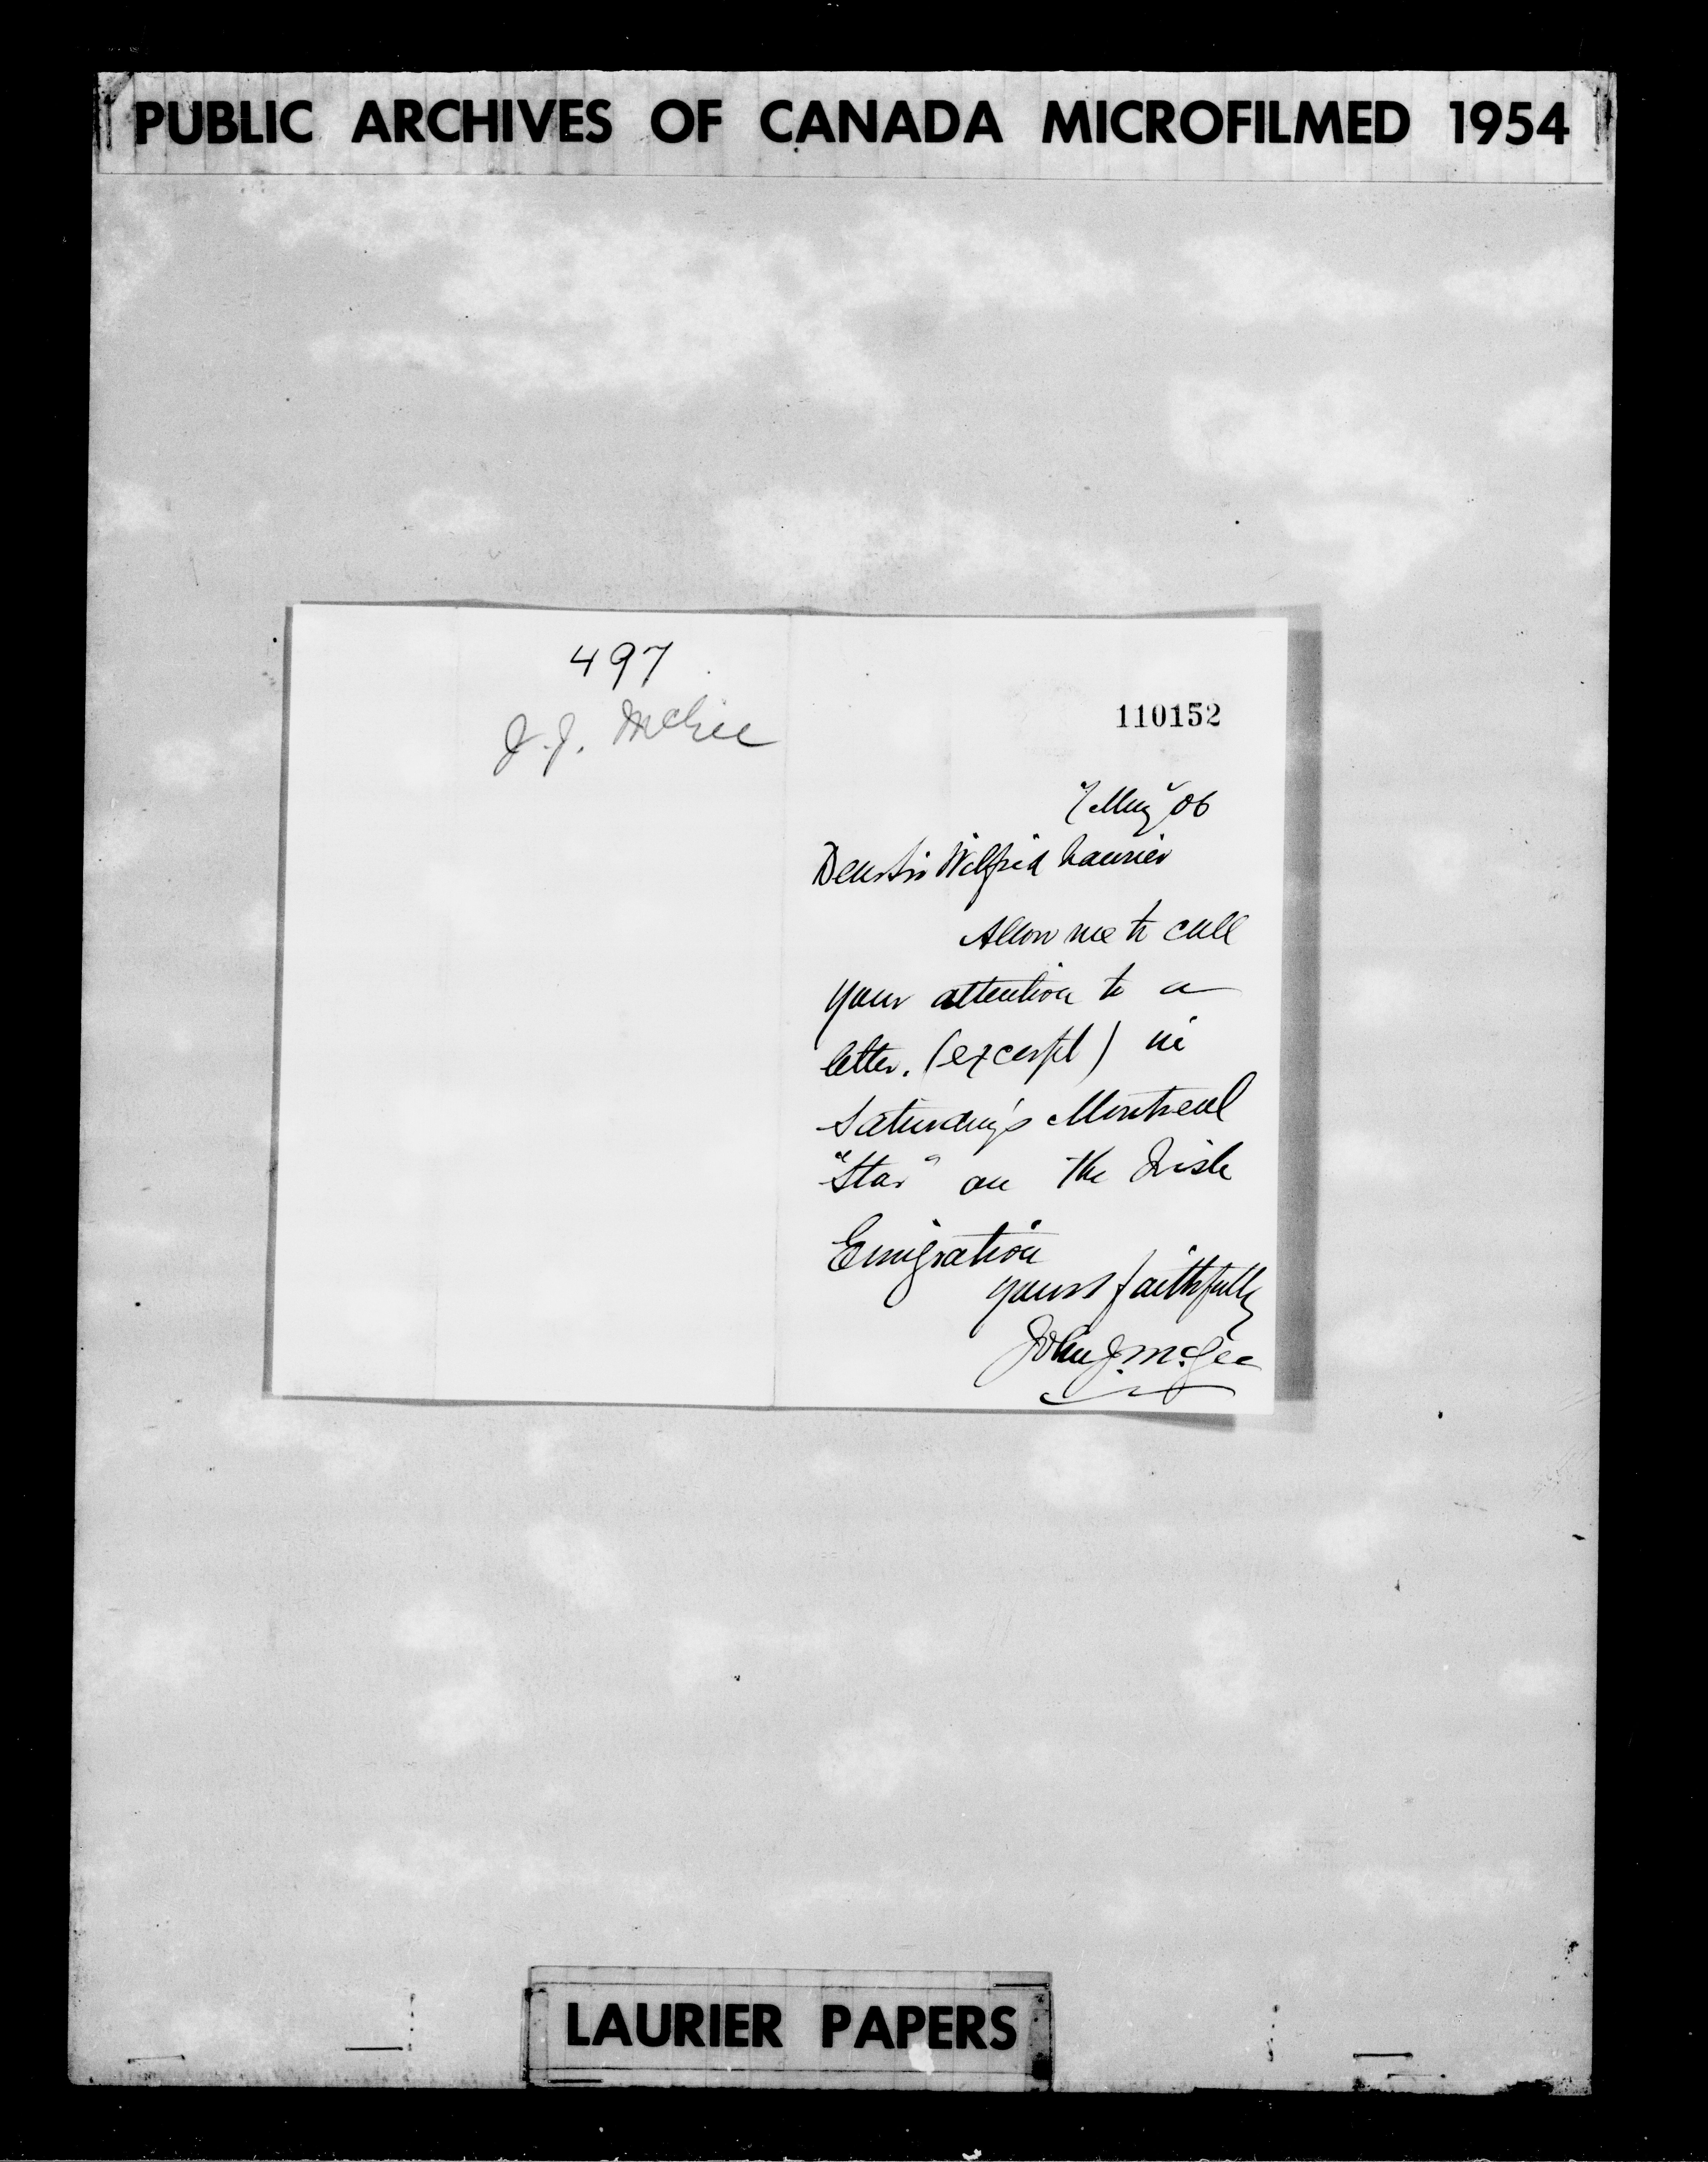 PUBLIC ARCHIVES OF CANADA MICROFILMED 1954
497
J. J. McGee
110152
7 May 06
Dear Sir Wilfrid Laurier
Allow me to call
your attention to a
letter. (excerpt) in
Saturday's Montreal
"Star" on the Irish
Emigration
yours faithfully
John J. McGee
LAURIER PAPERS